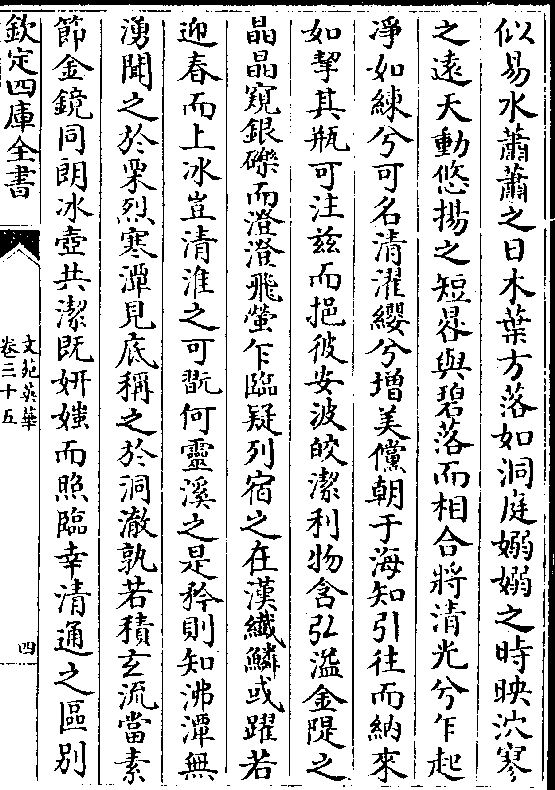 似易水蕭蕭之日木葉方落如洞庭嫋嫋之時映泬寥
之遠天動悠揚之短晷與碧落而相合將清光兮乍起
凈如練兮可名清濯纓兮增美儻朝于海知引往而納來
如挈其瓶可注兹而挹彼安波皎潔利物含弘溢金隄之
晶晶窺銀礫而澄澄飛螢乍臨疑列宿之在漢纖鱗或躍若
迎春而上冰豈清淮之可翫何靈溪之是矜則知沸潭無
湧聞之於栗烈寒潭見底稱之於洞澈孰若積玄流當素
節金鏡同朗冰壺共潔既妍媸而照臨幸清通之區别
欽定四庫全書
文苑英華
卷三十五
四